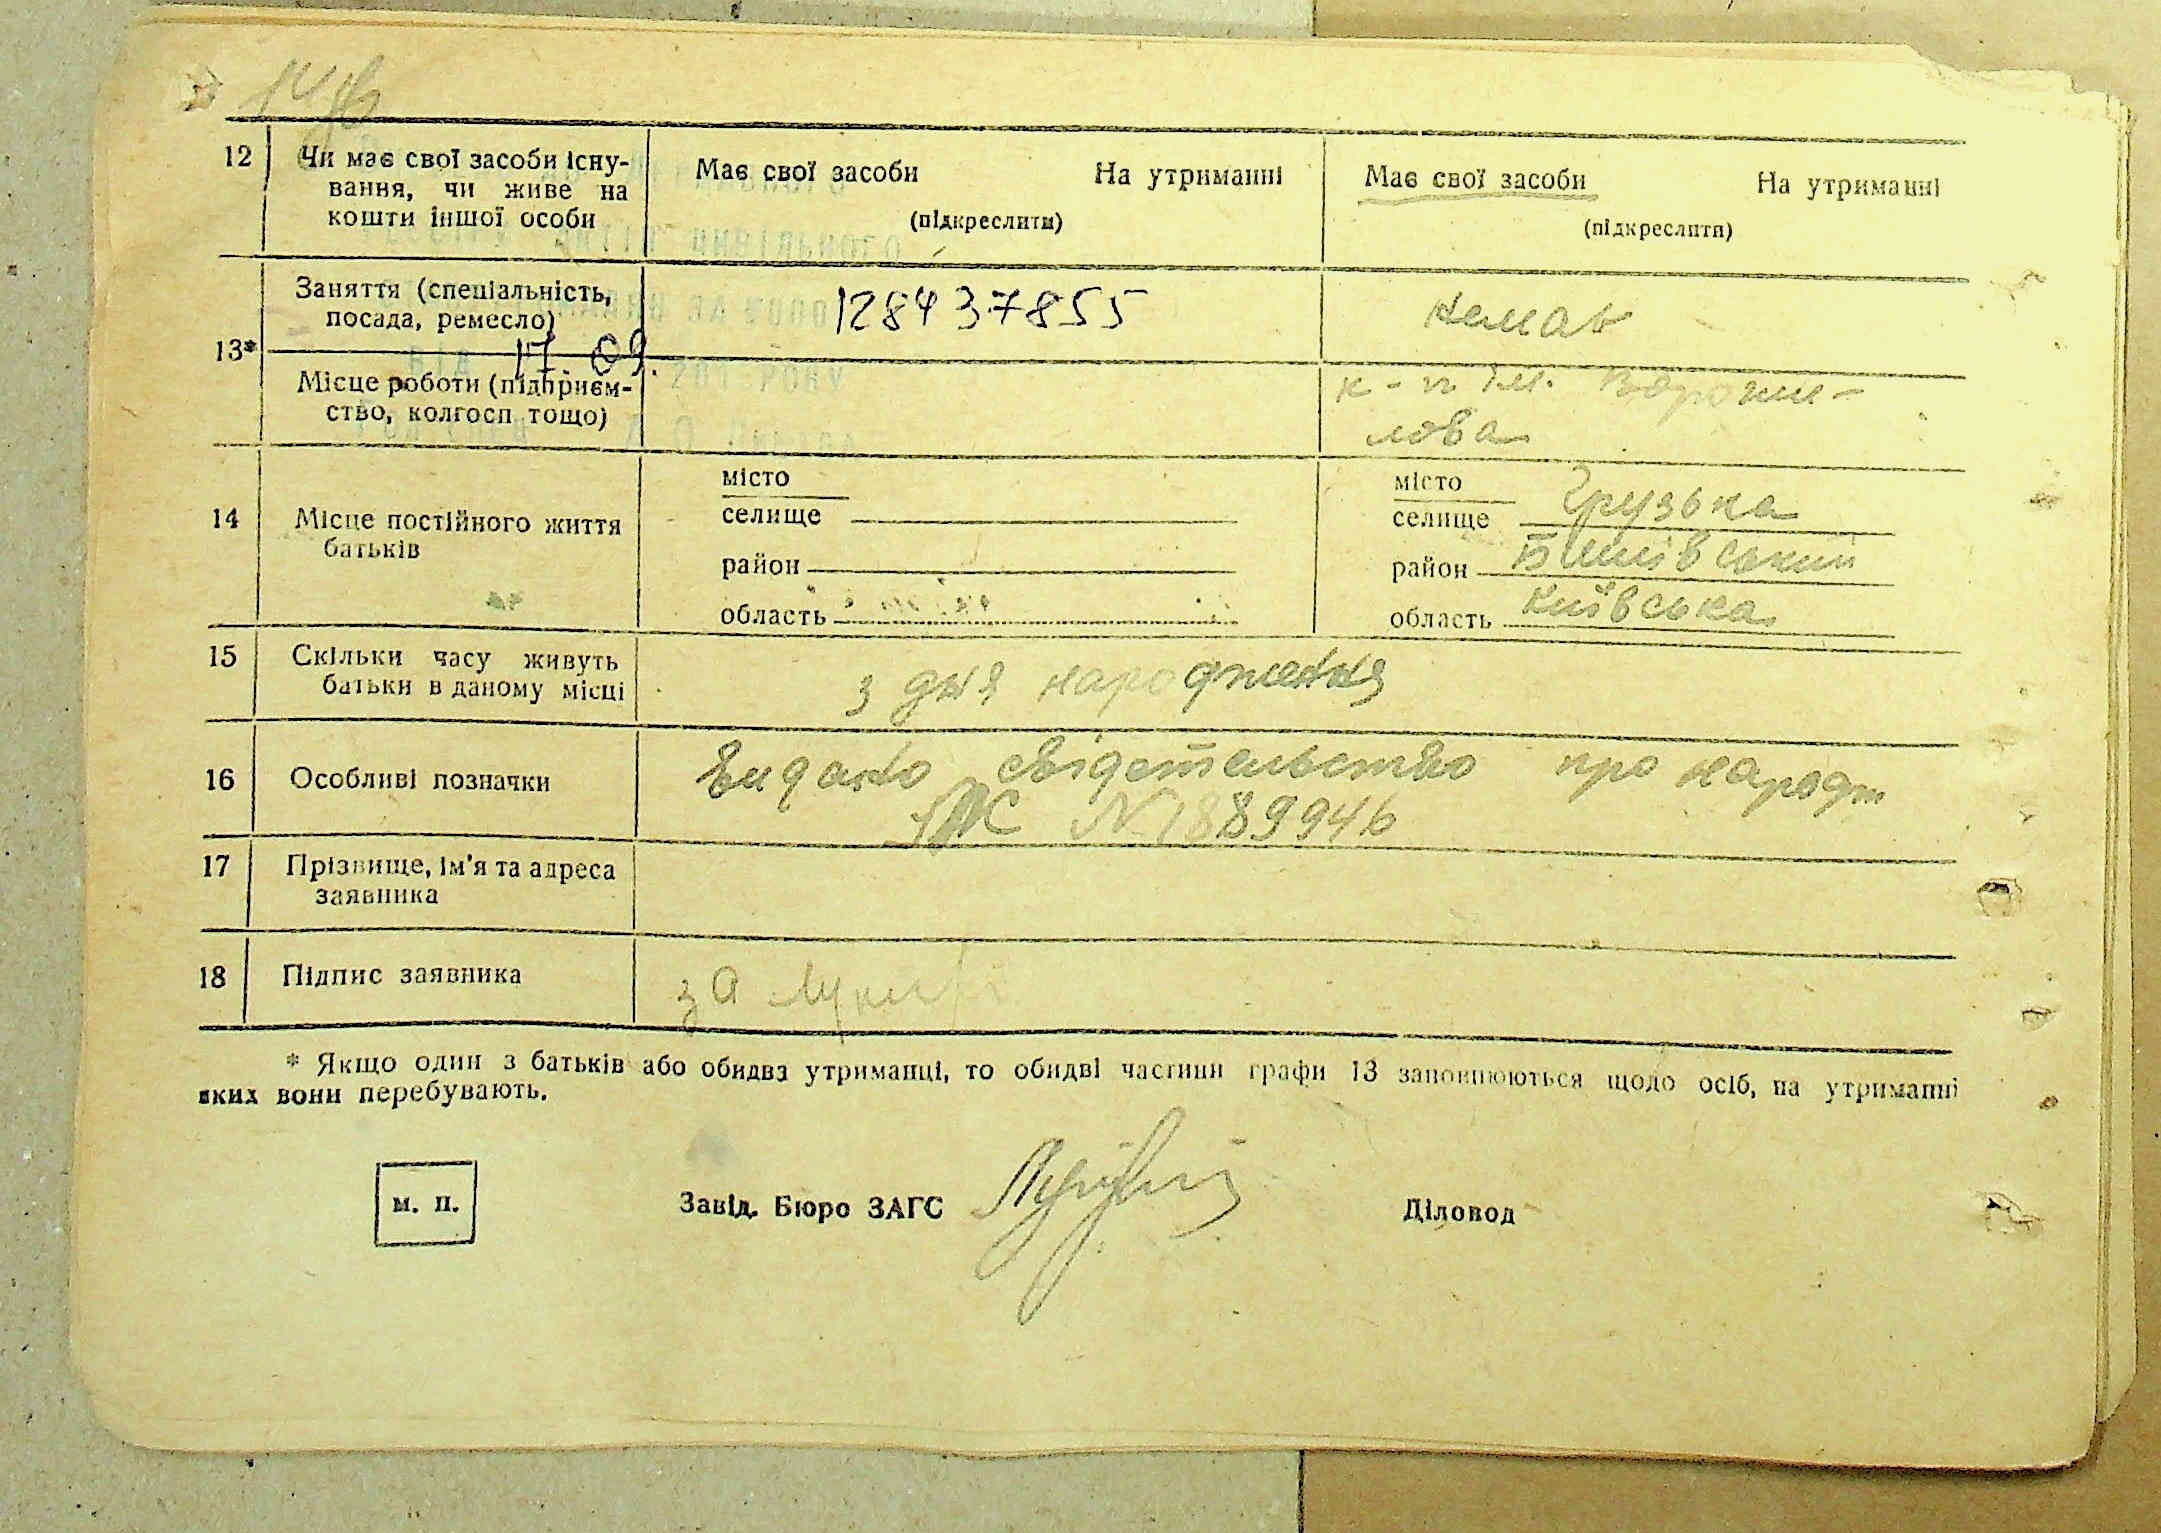 12 Чи має свої засоби існу-
вання, чи живе на
кошти іншої особи
Має свої засоби На утриманні
(підкреслити)
Має свої засоби На утриманні
(підкреслити)
13*
Заняття (спеціальність,
посада, ремесло)
128437855
немає
17. 09.
201 РОКУ
Місце роботи (підприєм-
ство, колгосп тощо)
к-п ім. Вороши-
лова
14 Місце постійного життя
батьків
місто
селище
район
область
місто
селище Грузька
район Бишівський
область Київська
15 Скільки часу живуть
батьки в даному місці
з дня народження
16 Особливі позначки
Видано свідетельство про народж
№ 1889946
17 Прізвище, ім'я та адреса
заявника
18 Підпис заявника
за
* Якщо один з батьків або обидва утриманці, то обидві частини графи 13 заповнюються щодо осіб, на утриманні
яких вони перебувають.
м. п.
Завід. Бюро ЗАГС
Діловод